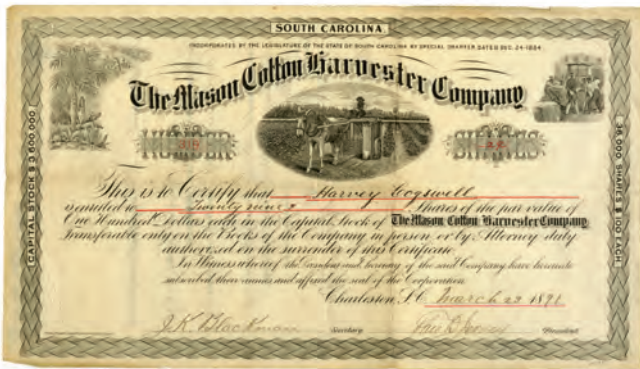 SOUTH CAROLINA
INCORPORATED BY THE LEGISLATURE OF THE STATE OF SOUTH CAROLINA BY SPECIAL CHARTER DATED DEC. 24 1884
The Mason Cotton Harvester Company
NUMBER SHARES
CAPITAL STOCK $3600.000
36,000 SHARES $100 EACH
This is to Certify that Harvey Cogswell
is entitled to Twenty nine Shares of the par value of
One Hundred Dollars each in the Capital Stock of The Mason Cotton Harvester Company
transferable only on the Books of the Company in person or by Attorney duly
authorized on the surrender of this Certificate
In Witness whereof the President and Secretary of the said Company have hereunto
subscribed their names and affixed the seal of the Corporation
Charleston S.C. March 23 1891
J.K. Blackman Secretary President